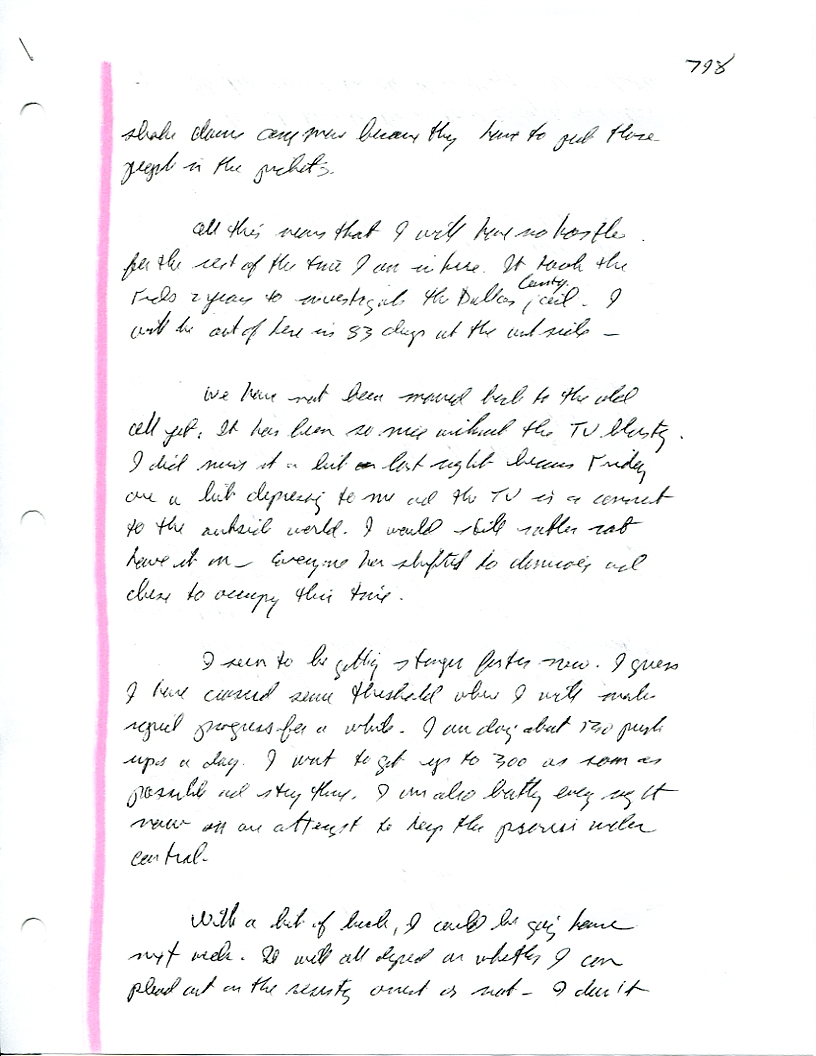 798
shake downs any more because they have to put those
people in the pockets.
All this means that I will have no hassle
for the rest of the time I am in here. It took the
Feds 2 years to investigate the Dallas County jail. I
will be out of here in 83 days at the outside –
We have not been moved back to the old
cell yet. It has been so nice without the TV blasting.
I did miss it a bit last night because Friday
are a bit depressing to me and the TV is a connect
to the outside world. I would still rather not
have it on – Everyone has shifted to dominoes and
chess to occupy their time.
I seem to be getting stronger faster now. I guess
I have crossed some threshold where I will make
rapid progress for a while. I am doing about 130 push
ups a day. I want to get up to 300 as soon as
possible and stay there. I am also bathing every night
now in an attempt to keep the psoriasis under
control.
With a bit of luck, I could be going home
next week. It will all depend on whether I can
plead out on the resisting arrest or not – I don't